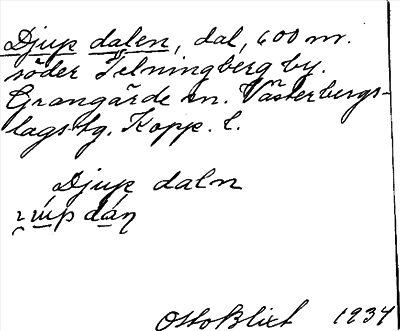 Djup dalen, dal, 600 m.
söder Telningberg by.
Grangärde sn. Västerbergs-
lags tg. Kopp. l.
Djup daln
Otto Blixt 1934